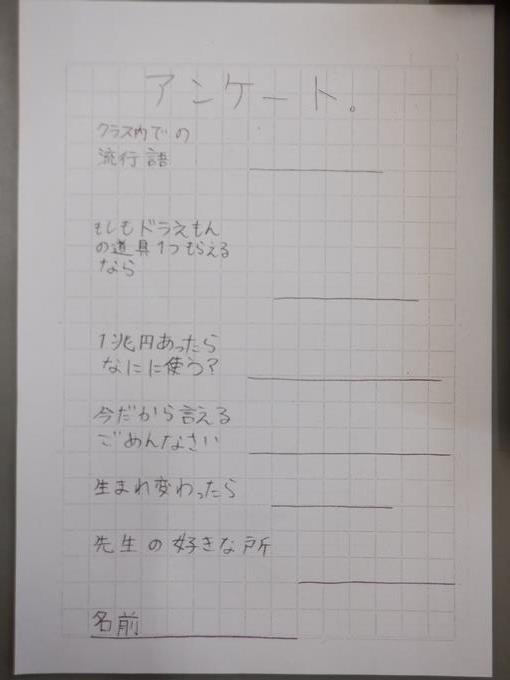 アンケート。
クラス内での
流行語
もしもドラえもん
の道具1つもらえる
なら
1兆円あったら
なにに使う?
今だから言える
ごめんなさい
生まれ変わったら
先生の好きな所
名前